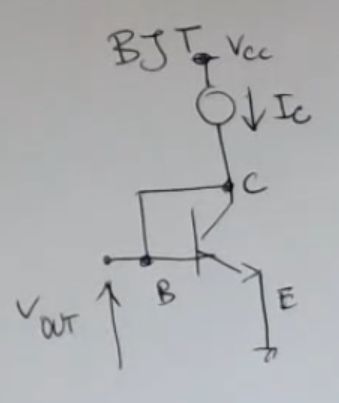 BJT
Vcc
Ic
C
B
E
VOUT